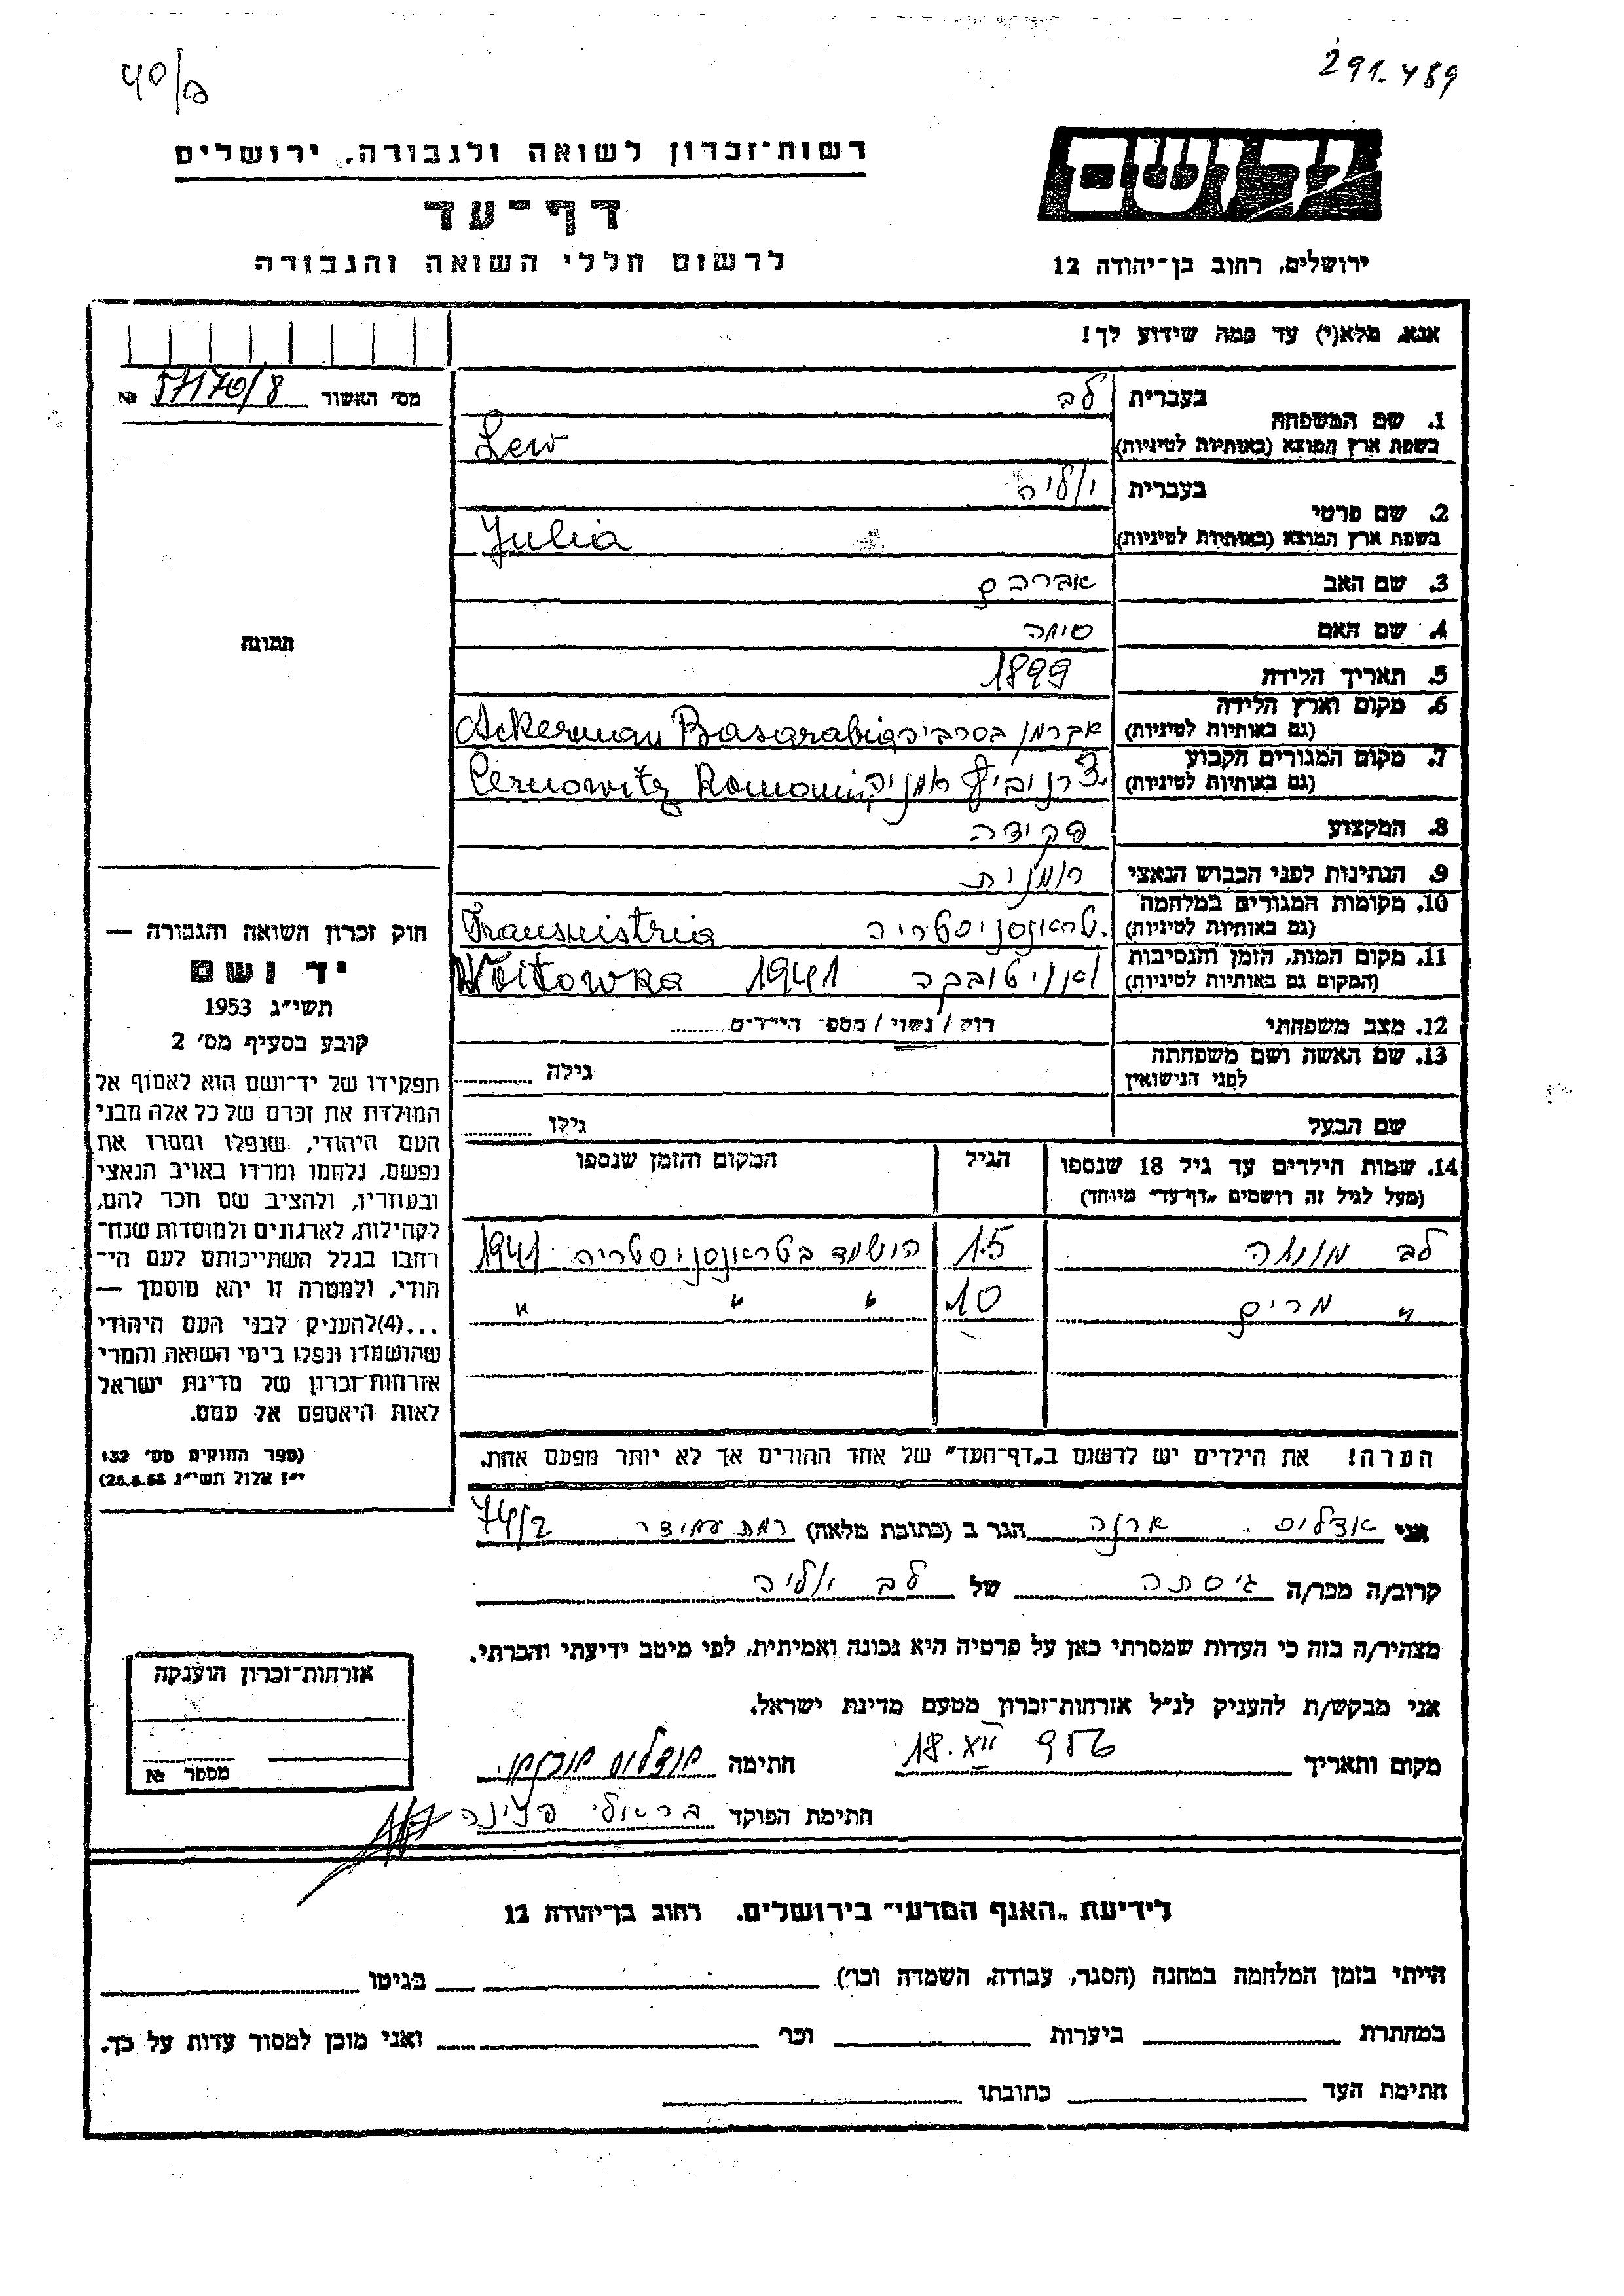 40/פ
291.489
יד ושם
ירושלים, רחוב בן־יהודה 12
רשות־זכרון לשואה ולגבורה, ירושלים
דף־עד
לרשום חללי השואה והגבורה
אנא, מלא(י) עד כמה שידוע לך!
מס׳ האשור 57170/8 №
תמונה
1. שם המשפחה
בעברית לב
בשפת ארץ המוצא (באותיות לטיניות) Lew
2. שם פרטי
בעברית יוליה
בשפת ארץ המוצא (באותיות לטיניות) Julia
3. שם האב אברהם
4. שם האם
5. תאריך הלידה 1899
6. מקום וארץ הלידה
(גם באותיות לטיניות) אקרמן בסרביה Ackerman Basarabia
7. מקום המגורים הקבוע
(גם באותיות לטיניות) צרנוביץ Cernowitz Romania
8. המקצוע פקידה
9. הנתינות לפני הכבוש הנאצי רומנית
10. מקומות המגורים במלחמה
(גם באותיות לטיניות) טראנסניסטריה Transnistria
11. מקום המות, הזמן והנסיבות
(המקום גם באותיות לטיניות) 1941 Woitowka
12. מצב משפחתי רווק / נשוי / מספר הילדים
13. שם האשה ושם משפחתה
לפני הנישואין
גילה
שם הבעל
גילו
14. שמות הילדים עד גיל 18 שנספו
(מעל לגיל זה רושמים „דף־עד" מיוחד)
הגיל
המקום והזמן שנספו
לב 15 הושמד בטראנסניסטריה 1941
" מרים 10 " " "
הערה! את הילדים יש לרשום ב„דף־העד" של אחד ההורים אך לא יותר מפעם אחת.
חוק זכרון השואה והגבורה —
יד ושם
תשי״ג 1953
קובע בסעיף מס׳ 2
תפקידו של יד־ושם הוא לאסוף אל
המולדת את זכרם של כל אלה מבני
העם היהודי, שנפלו ומסרו את
נפשם, נלחמו ומרדו באויב הנאצי
ובעוזריו, ולהציב שם וזכר להם,
לקהילות, לארגונים ולמוסדות שנח־
רבו בגלל השתייכותם לעם הי־
הודי, ולמטרה זו יהא מוסמך —
...(4)להעניק לבני העם היהודי
שהושמדו ונפלו בימי השואה והמרי
אזרחות־זכרון של מדינת ישראל
לאות היאספם אל עמם.
(ספר החוקים מס׳ 132
י״ז אלול תשי״ג 28.8.53)
אני הגר ב (כתובת מלאה) רמת עמידר 74/2
קרוב/ה מכר/ה גיסתה של לב יוליה
מצהיר/ה בזה כי העדות שמסרתי כאן על פרטיה היא נכונה ואמיתית, לפי מיטב ידיעתי והכרתי.
אני מבקש/ת להעניק לנ״ל אזרחות־זכרון מטעם מדינת ישראל.
מקום ותאריך 18. חתימה
חתימת הפוקד
אזרחות־זכרון הוענקה
מספר №
לידיעת „האגף המדעי" בירושלים, רחוב בן־יהודה 12
הייתי בזמן המלחמה במחנה (הסגר, עבודה, השמדה וכו׳) בגיטו
במחתרת ביערות וכו׳ ואני מוכן למסור עדות על כך.
חתימת העד כתובתו